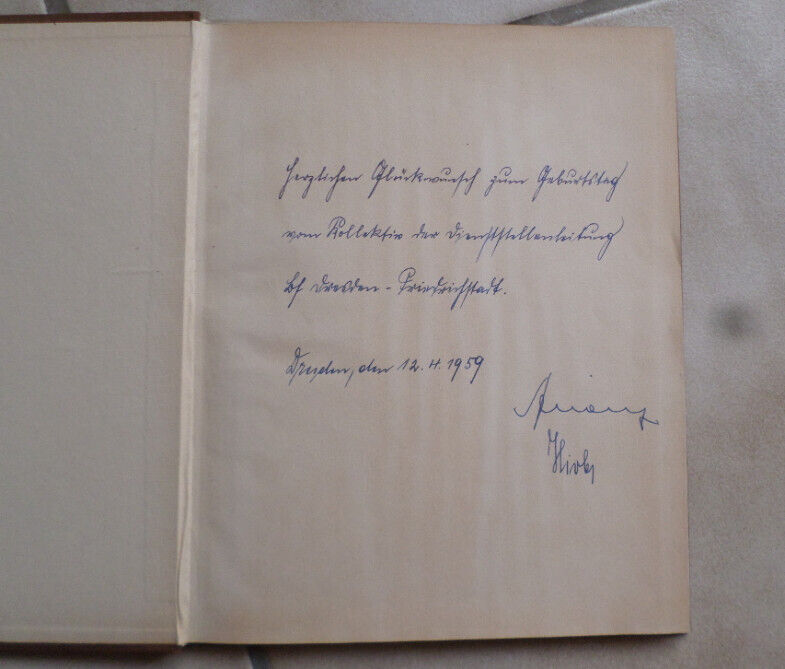 Herzlichen Glückwunsch zum Geburtstag
vom Kollektiv der Dienststellenleitung
Bf Dresden - Friedrichstadt.
Dresden, den 12.4.1959